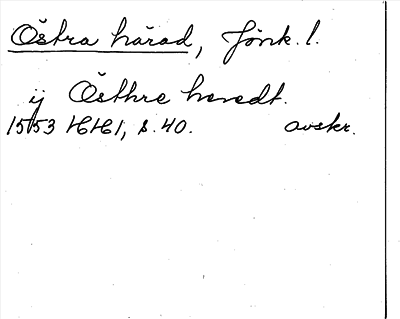 Östra härad, Jönk. l.
ij Östhre heredt.
1553 HH1, s. 40. avskr.